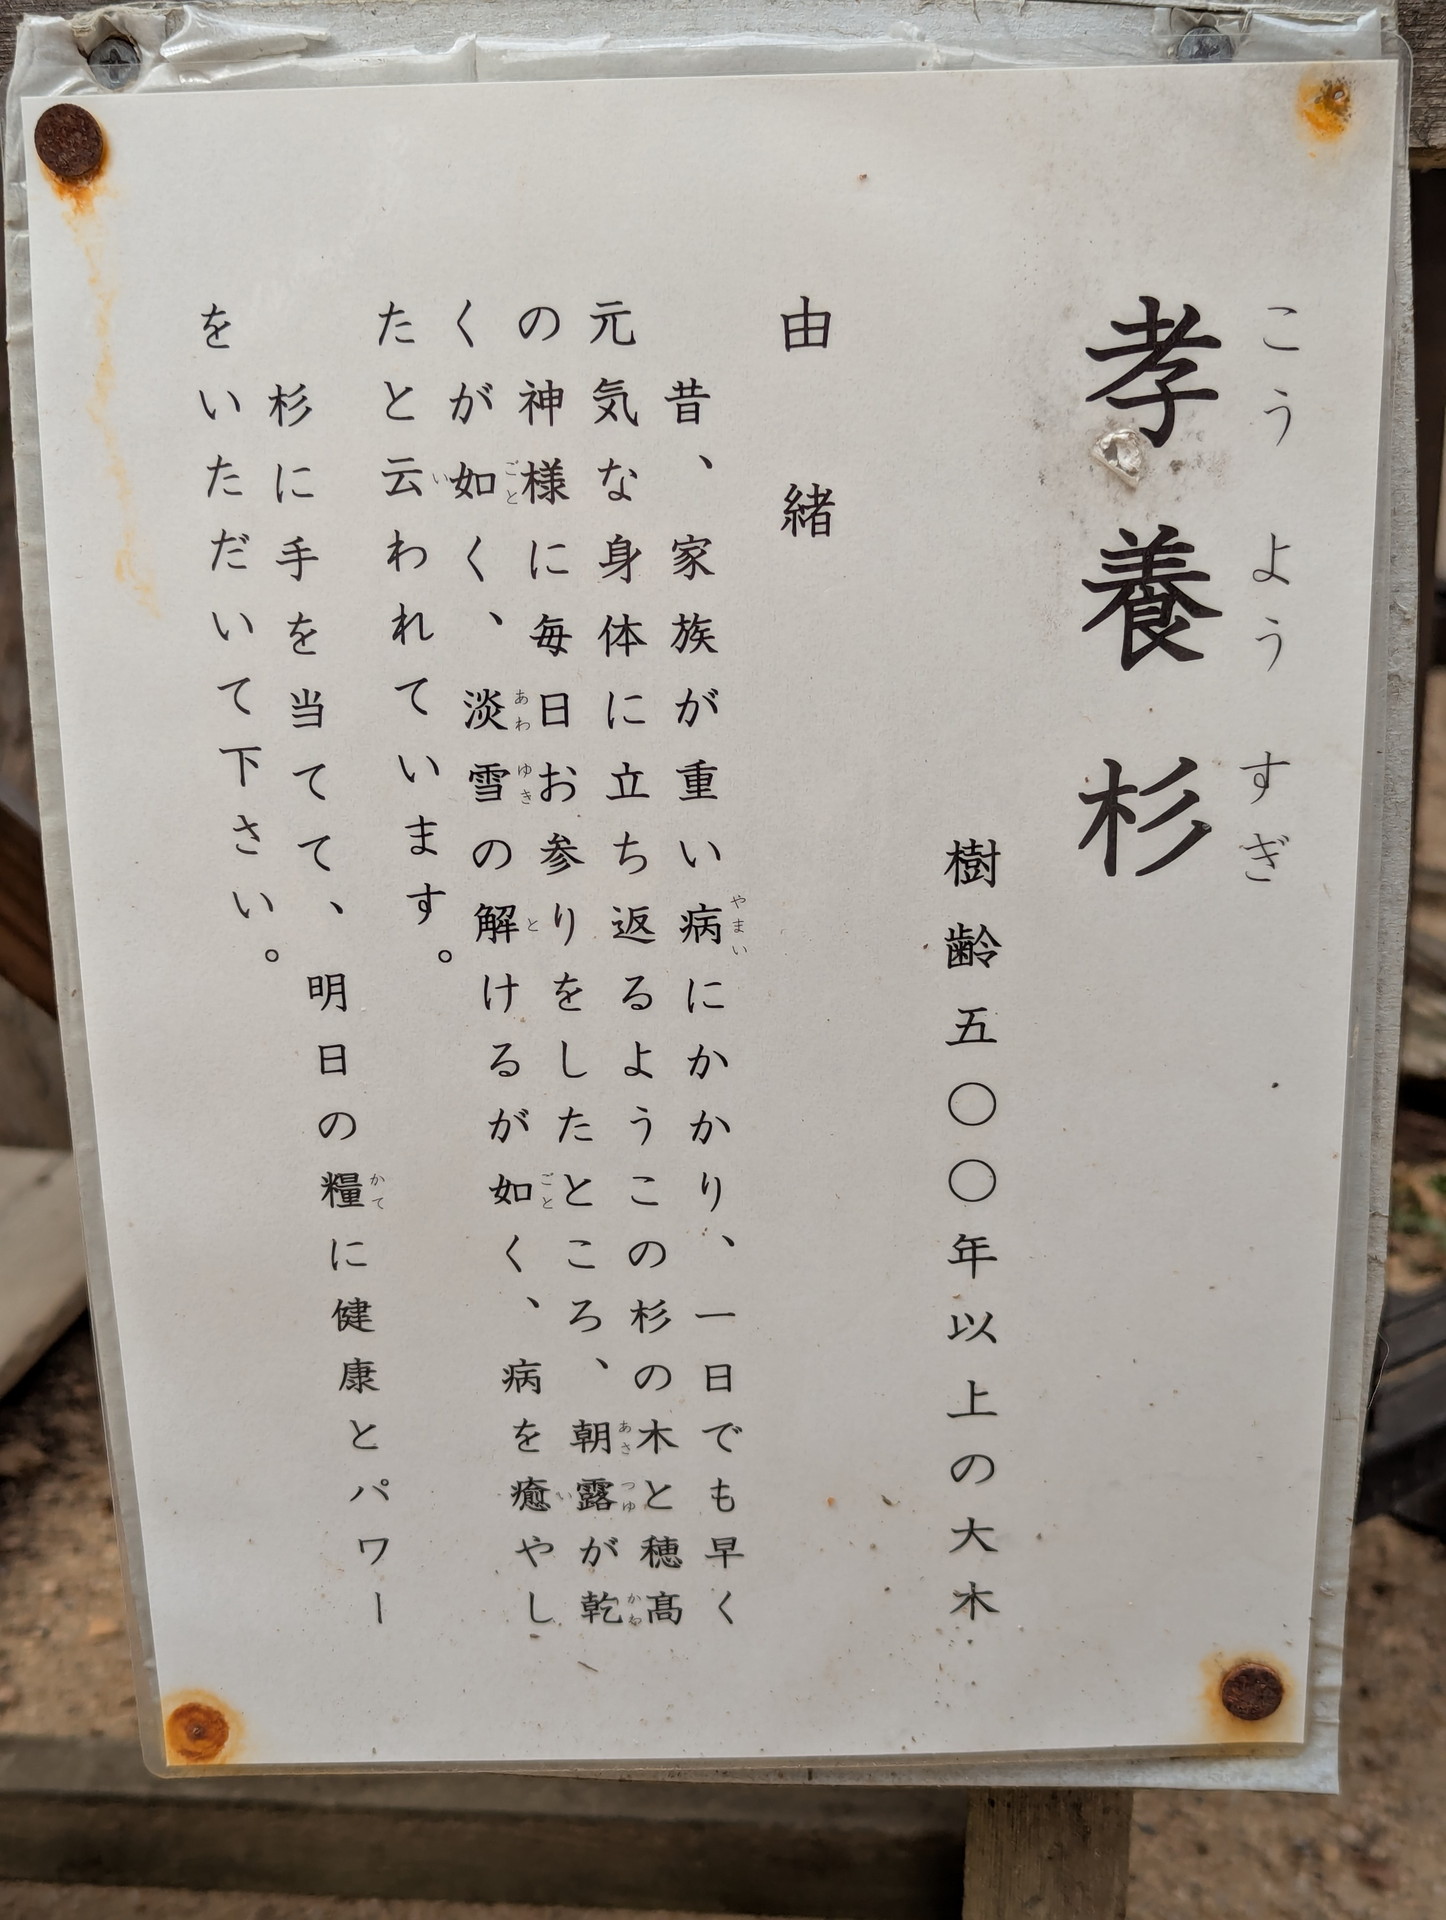 こうようすぎ
孝養杉
樹齢五〇〇年以上の大木
由緒
昔、家族が重い病にかかり、一日でも早く
やまい
元気な身体に立ち返るようこの杉の木と穂髙
の神様に毎日お参りをしたところ、朝露が乾
あさつゆ かわ
くが如く、淡雪の解けるが如く、病を癒やし
ごと あわゆき と ごと い
たと云われています。
い
杉に手を当てて、明日の糧に健康とパワー
かて
をいただいて下さい。